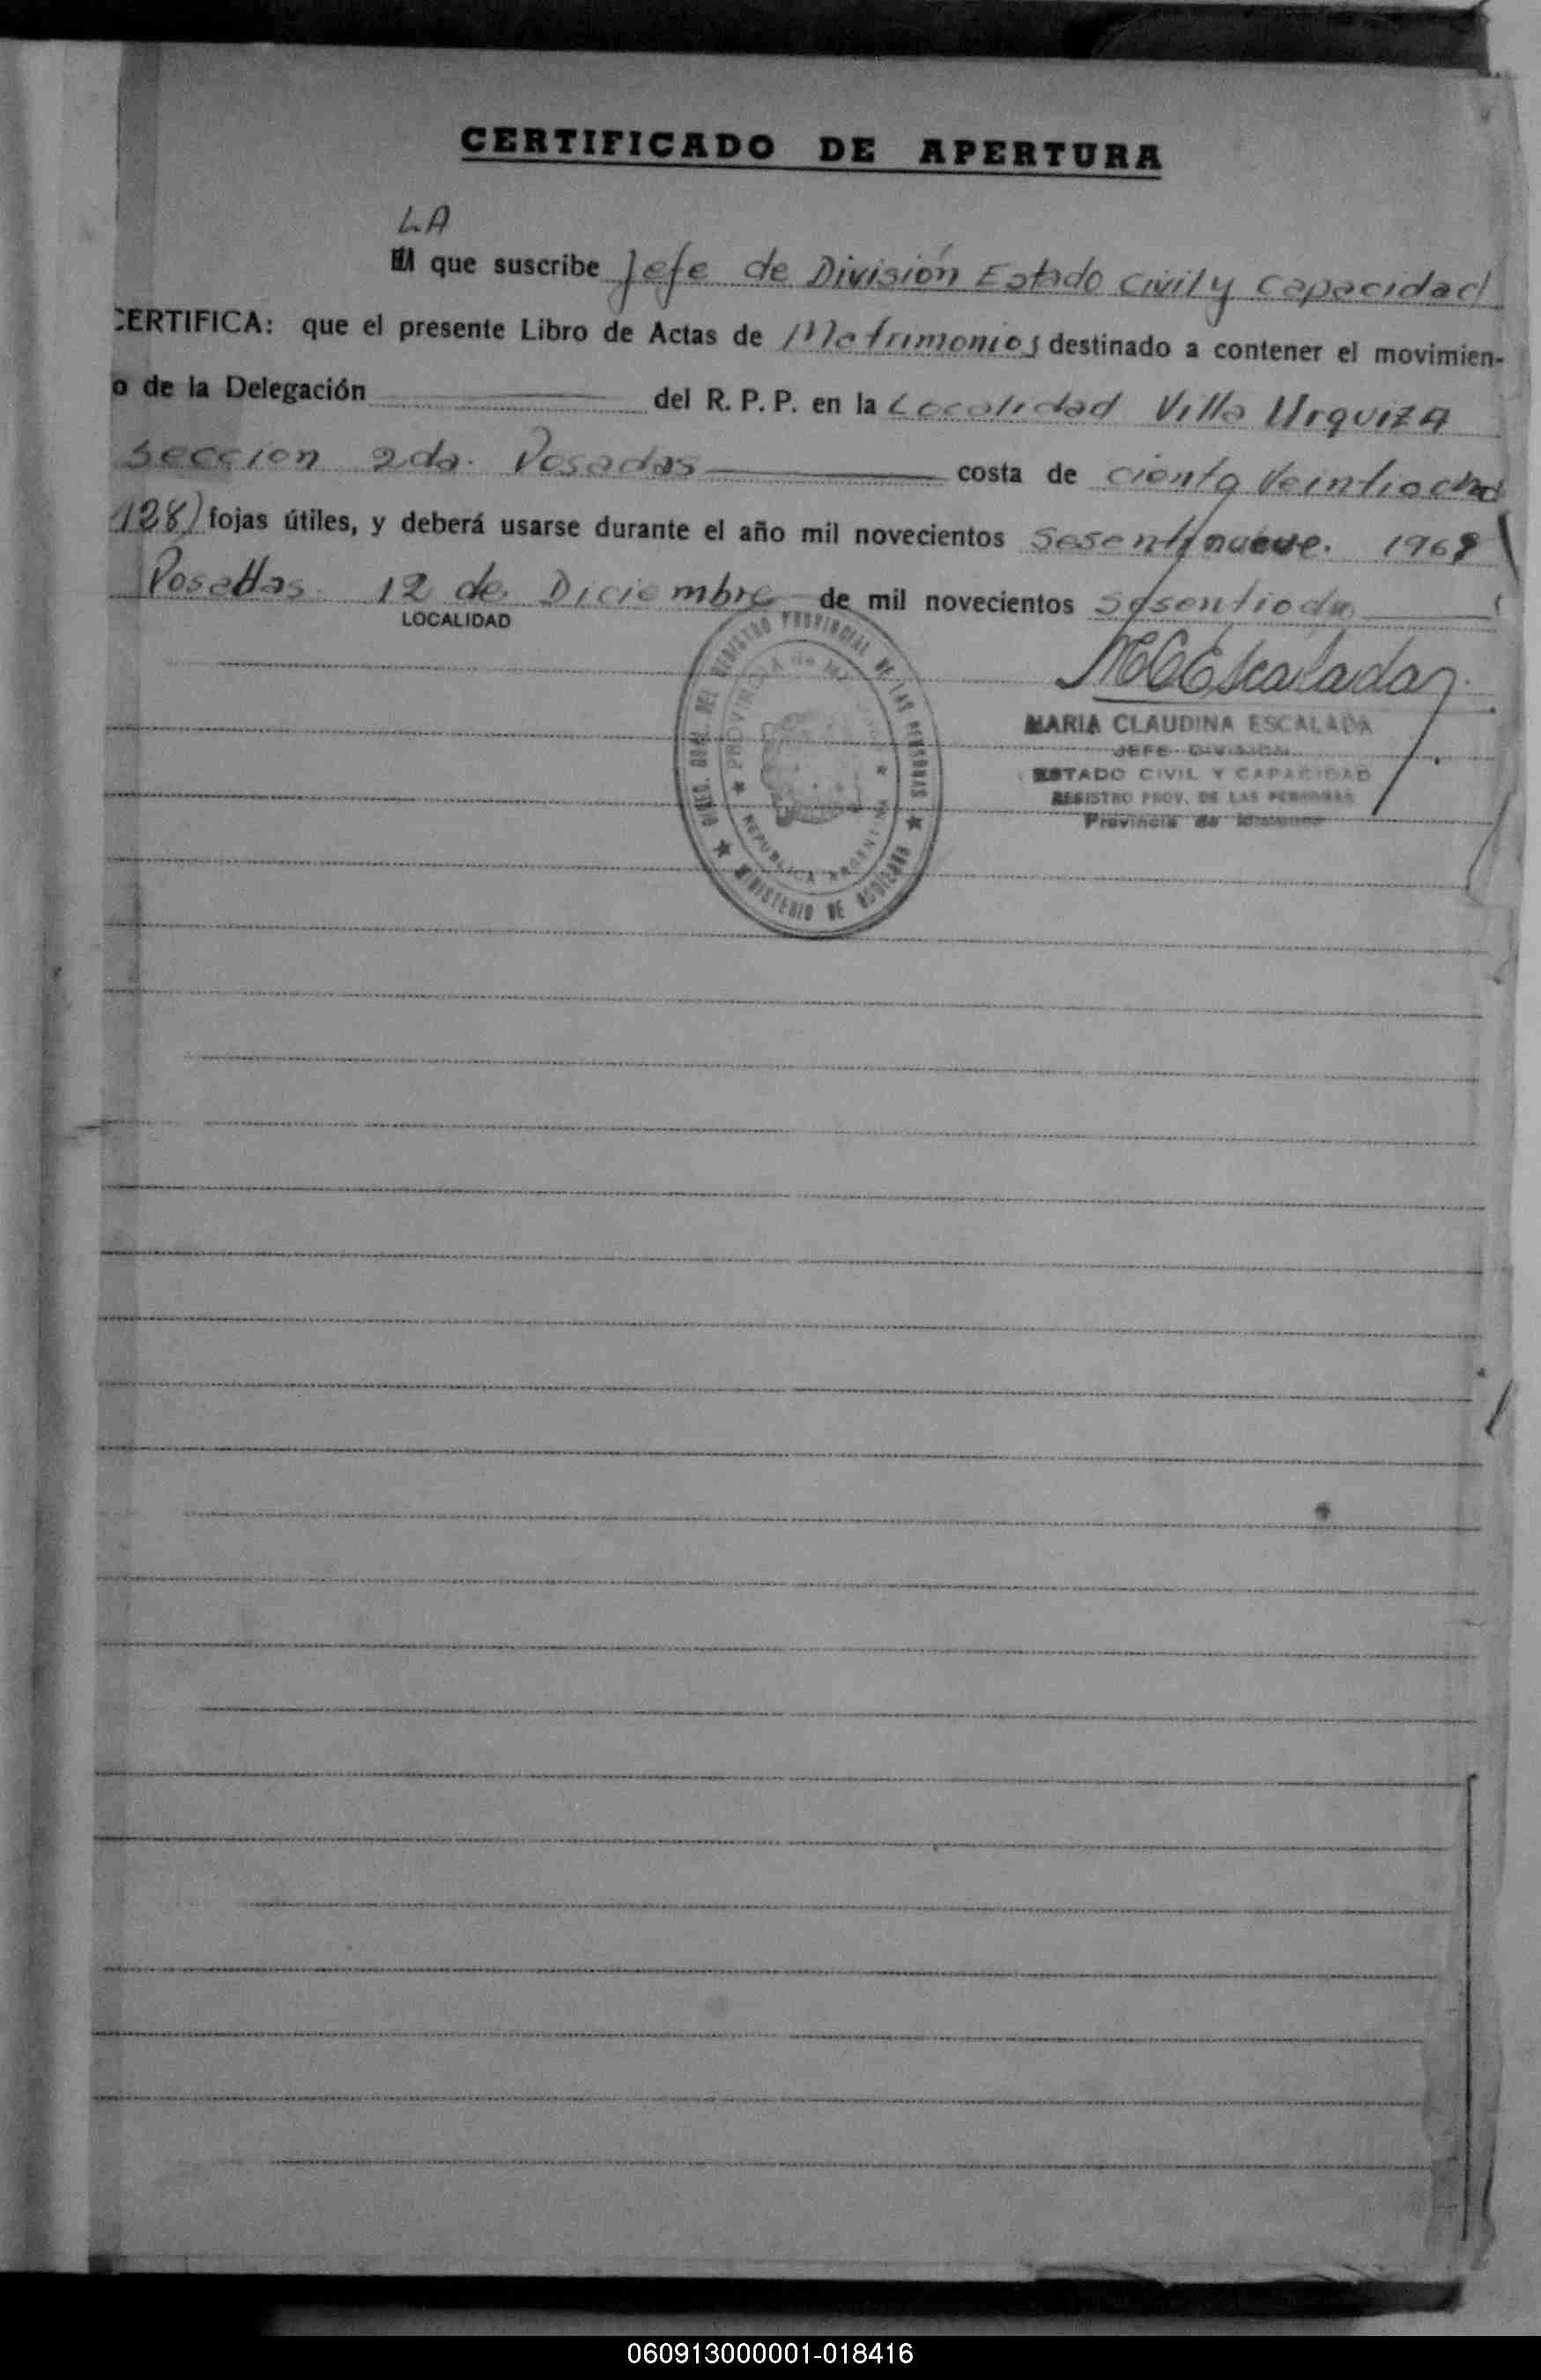 CERTIFICADO DE APERTURA
LA
El que suscribe Jefe de División Estado Civil y Capacidad
CERTIFICA: que el presente Libro de Actas de Matrimonios destinado a contener el movimien-
o de la Delegación del R. P. P. en la Localidad Villa Urquiza
Seccion 2da. Posadas costa de ciento Veintiocho
128) fojas útiles, y deberá usarse durante el año mil novecientos sesentinueve. 1969
Posadas 12 de Diciembre de mil novecientos
LOCALIDAD
MCEscalada
MARIA CLAUDINA ESCALADA
JEFE DIVISION
ESTADO CIVIL Y CAPACIDAD
REGISTRO PROV. DE LAS PERSONAS
Provincia de Misiones
DIREC. GRAL. DEL REGISTRO PROVINCIAL DE LAS PERSONAS
MINISTERIO DE GOBIERNO
PROVINCIA de MISIONES
REPUBLICA ARGENTINA
060913000001-018416